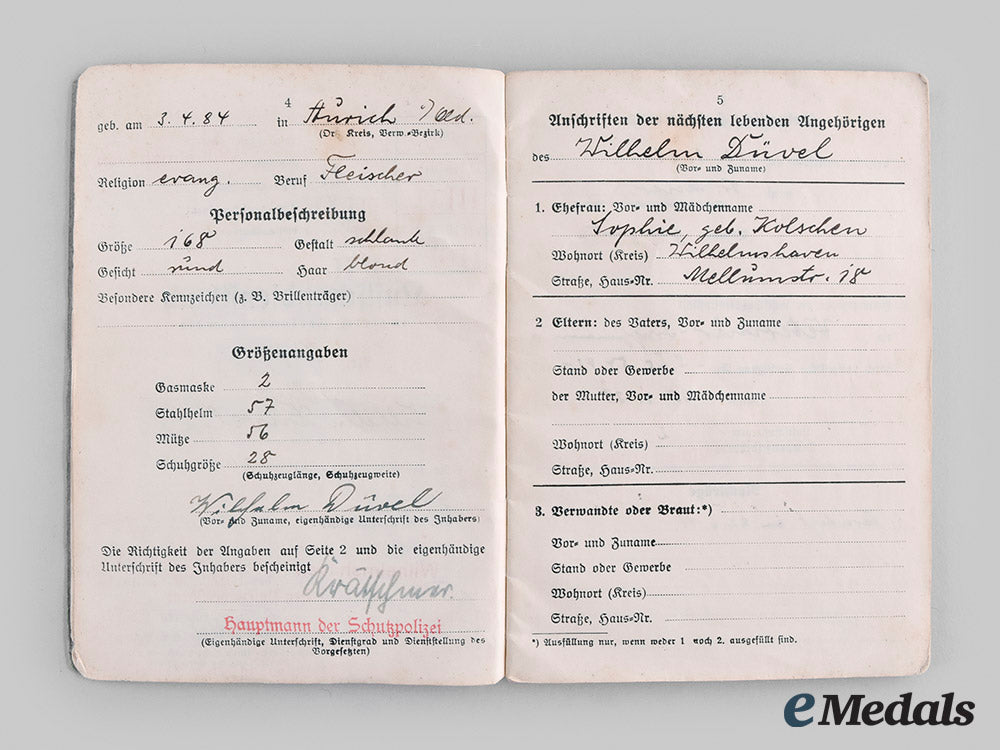 4
geb. am 3. 4. 84 in Aurich i/Old.
(Ort, Kreis, Verw.-Bezirk)
Religion evang. Beruf Fleischer
Personalbeschreibung
Größe 168 Gestalt schlank
Gesicht rund Haar blond
Besondere Kennzeichen (z. B. Brillenträger)
Größenangaben
Gasmaske 2
Stahlhelm 57
Mütze 56
Schuhgröße 28
(Schuhzeuglänge, Schuhzeugweite)
Wilhelm Düvel
(Vor- und Zuname, eigenhändige Unterschrift des Inhabers)
Die Richtigkeit der Angaben auf Seite 2 und die eigenhändige
Unterschrift des Inhabers bescheinigt
Krätschmer.
Hauptmann der Schutzpolizei
(Eigenhändige Unterschrift, Dienstgrad und Dienststellung des
Vorgesetzten)
5
Anschriften der nächsten lebenden Angehörigen
des Wilhelm Düvel
(Vor- und Zuname)
1. Ehefrau: Vor- und Mädchenname
Sophie, geb. Kolschen
Wohnort (Kreis) Wilhelmshaven
Straße, Haus-Nr. Mellumstr. 18
2 Eltern: des Vaters, Vor- und Zuname
Stand oder Gewerbe
der Mutter, Vor- und Mädchenname
Wohnort (Kreis)
Straße, Haus-Nr.
3. Verwandte oder Braut:*)
Vor- und Zuname
Stand oder Gewerbe
Wohnort (Kreis)
Straße, Haus-Nr.
*) Ausfüllung nur, wenn weder 1 noch 2. ausgefüllt sind.
eMedals